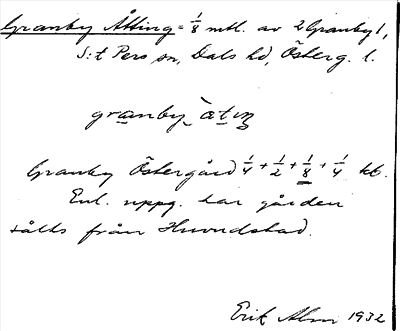 Granby Åtting = 1/8 mtl. av 2 Granby 1,
S:t Pers sn, Dals hd, Österg. l.
granby ătiŋ
Granby Östergård 1/4 + 1/2 + 1/8 + 1/4 kb.
Enl. uppg. har gården
sålts från Huvudstad.
Erik Alm 1932